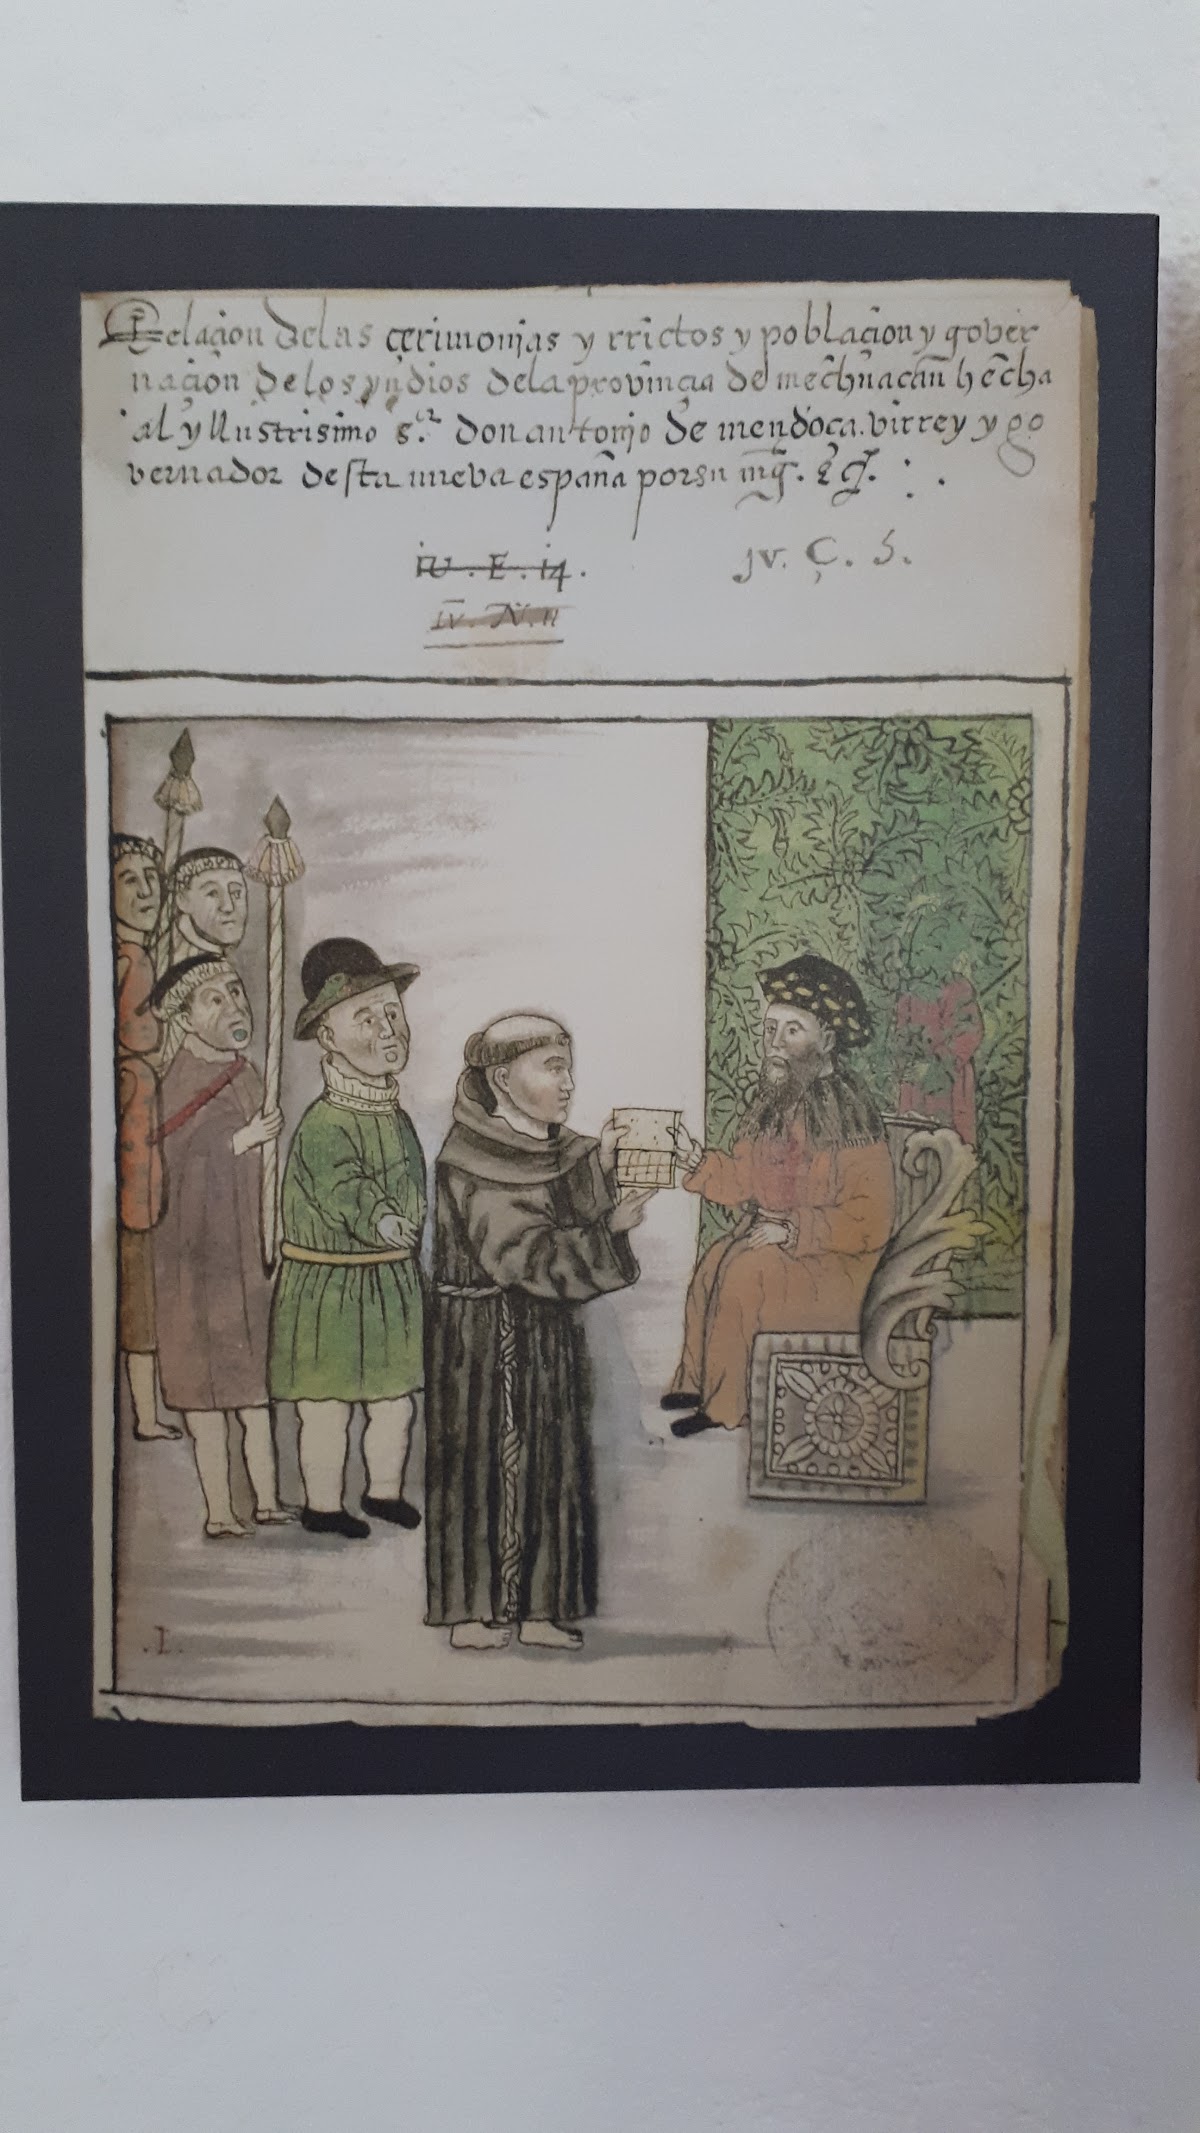 Relacion delas çerimonias y rrictos y poblaçion y gover
naçion delos yndios dela provinçia de mechuacan hecha
al yllustrisimo s.or don antonio de mendoça. virrey y go
vernador desta nueva españa por su mg. &c.
iv. E. i4.
iv. N. ii
jv. Ç. 5.
.I.